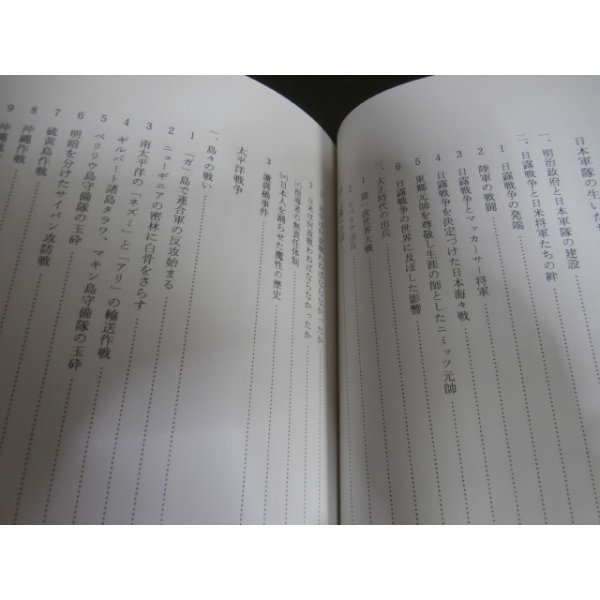 日本軍隊の生いた
一、明治政府と日本軍隊の建設
二、日露戦争と日米将軍たちの絆
1 日露戦争の発端
2 陸軍の戦闘
3 日露戦争とマッカーサー将軍
4 日露戦争を決定づけた日本海々戦
5 東郷元帥を尊敬し生涯の師としたニミッツ元帥
6 日露戦争の世界に及ぼした影響
三、大正時代の出兵
1 第一次世界大戦
2 シベリア出兵
2 日本は何故戦わねばならなかったか
(イ)指導者の無責任体制
(ロ)日本人を踊らせた魔性の歴史
3 蘆溝橋事件
太平洋戦争
一、島々の戦い
1 「ガ」島で連合軍の反攻始まる
2 ニューギニアの密林に白骨をさらす
3 南太平洋の「ネズミ」と「アリ」の輸送作戦
4 ギルバート諸島タラワ、マキン島守備隊の玉砕
5 ペリリウ島守備隊の玉砕
6 明暗を分けたサイパン攻防戦
7 硫黄島作戦
8 沖縄作戦
9 沖縄